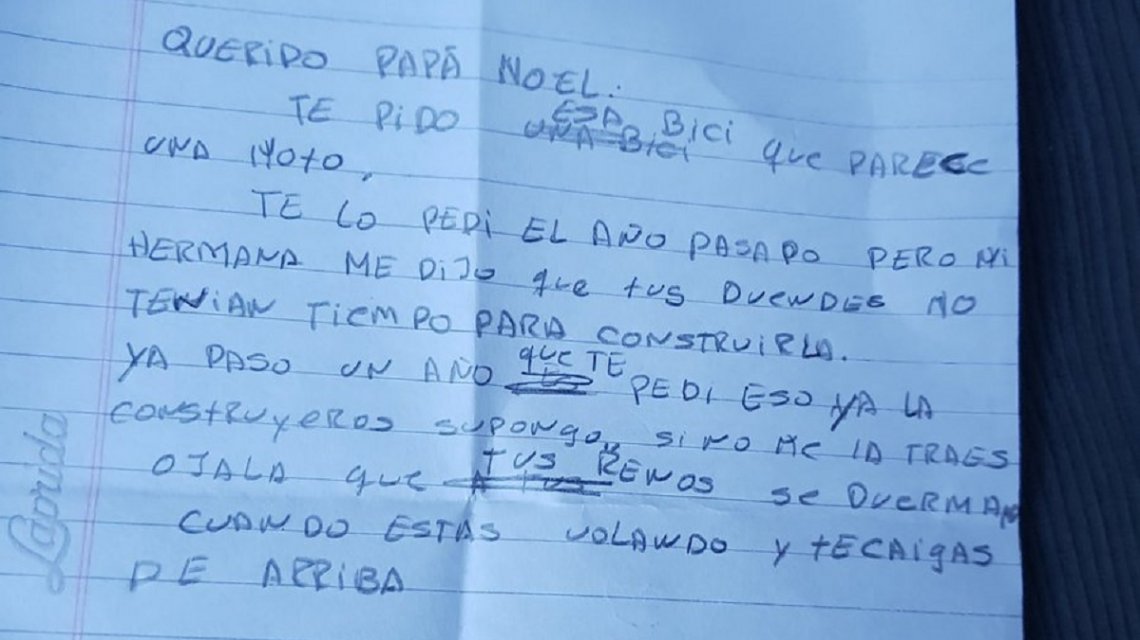 QUERIDO PAPÁ NOEL.
TE PIDO ESA BICI QUE PARECE
UNA MOTO,
TE LO PEDI EL AÑO PASADO PERO MI
HERMANA ME DIJO QUE TUS DUENDES NO
TENIAN TIEMPO PARA CONSTRUIRLA.
YA PASO UN AÑO QUE TE PEDI ESO YA LA
CONSTRUYEROS SUPONGO, SI NO ME LA TRAES
OJALA QUE TUS RENOS SE DUERMAN
CUANDO ESTAS VOLANDO Y TECAIGAS
DE ARRIBA
Laprida